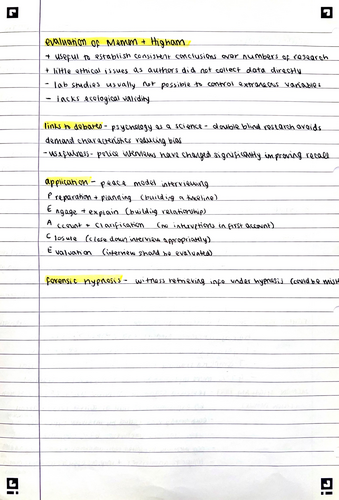 evaluation of Memon + Higham
+ useful to establish consistent conclusions over numbers of research
+ little ethical issues as authors did not collect data directly
- lab studies usually not possible to control extraneous variables
- lacks ecological validity
links to debates - psychology as a science - double blind research avoids
demand characteristics reducing bias
- usefulness - police interviews have changed significantly improving recall
application - peace model interviewing
P reparation + planning (building a timeline)
E ngage + explain (building relationship)
A ccount + clarification (no interuptions in first account)
C losure (close down interview appropriately)
E valuation (interview should be evaluated)
forensic hypnosis - witness retrieving info under hypnosis (could be